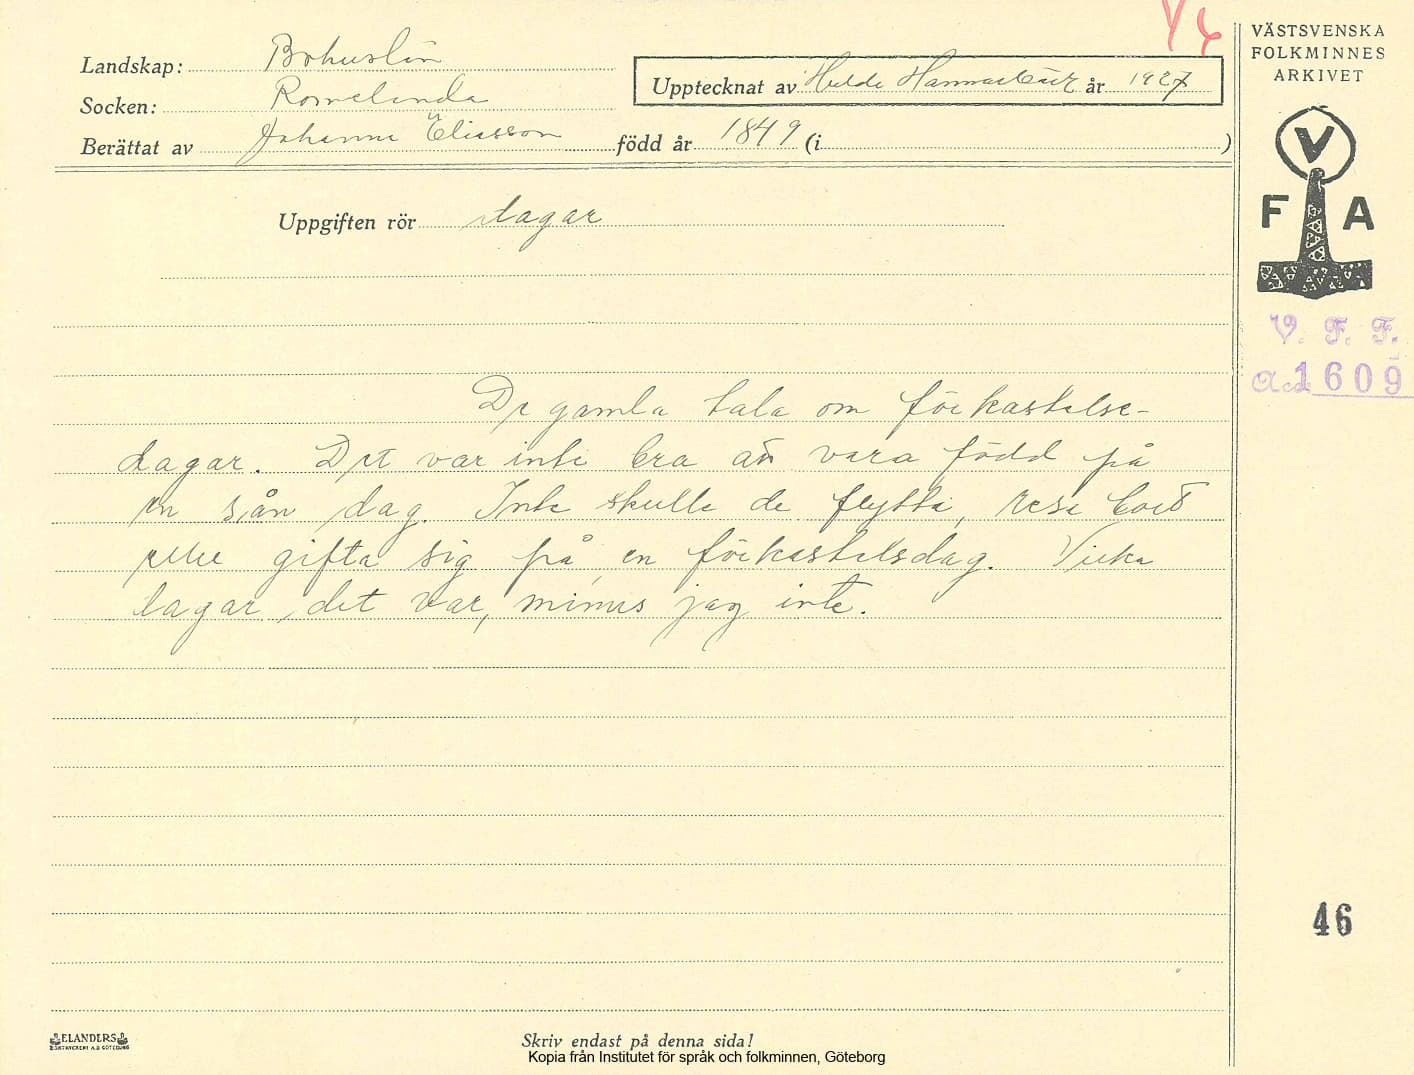 Landskap: Bohuslän
Socken: Romelanda
Berättat av Johanna Eliasson född år 1849 (i )
Upptecknat av Hulda Hammarbäck år 1927
VÄSTSVENSKA
FOLKMINNES
ARKIVET
V
F A
V. F. F.
Acc. 1609
Uppgiften rör dagar
De gamla tala om förkastelse-
dagar. Det var inte bra att vara född på
en sån dag. Inte skulle de flytta, resa bort
eller gifta sig på en förkastelsdag. Vicka
dagar det var, minns jag inte.
46
ELANDERS
Skriv endast på denna sida!
Kopia från Institutet för språk och folkminnen, Göteborg